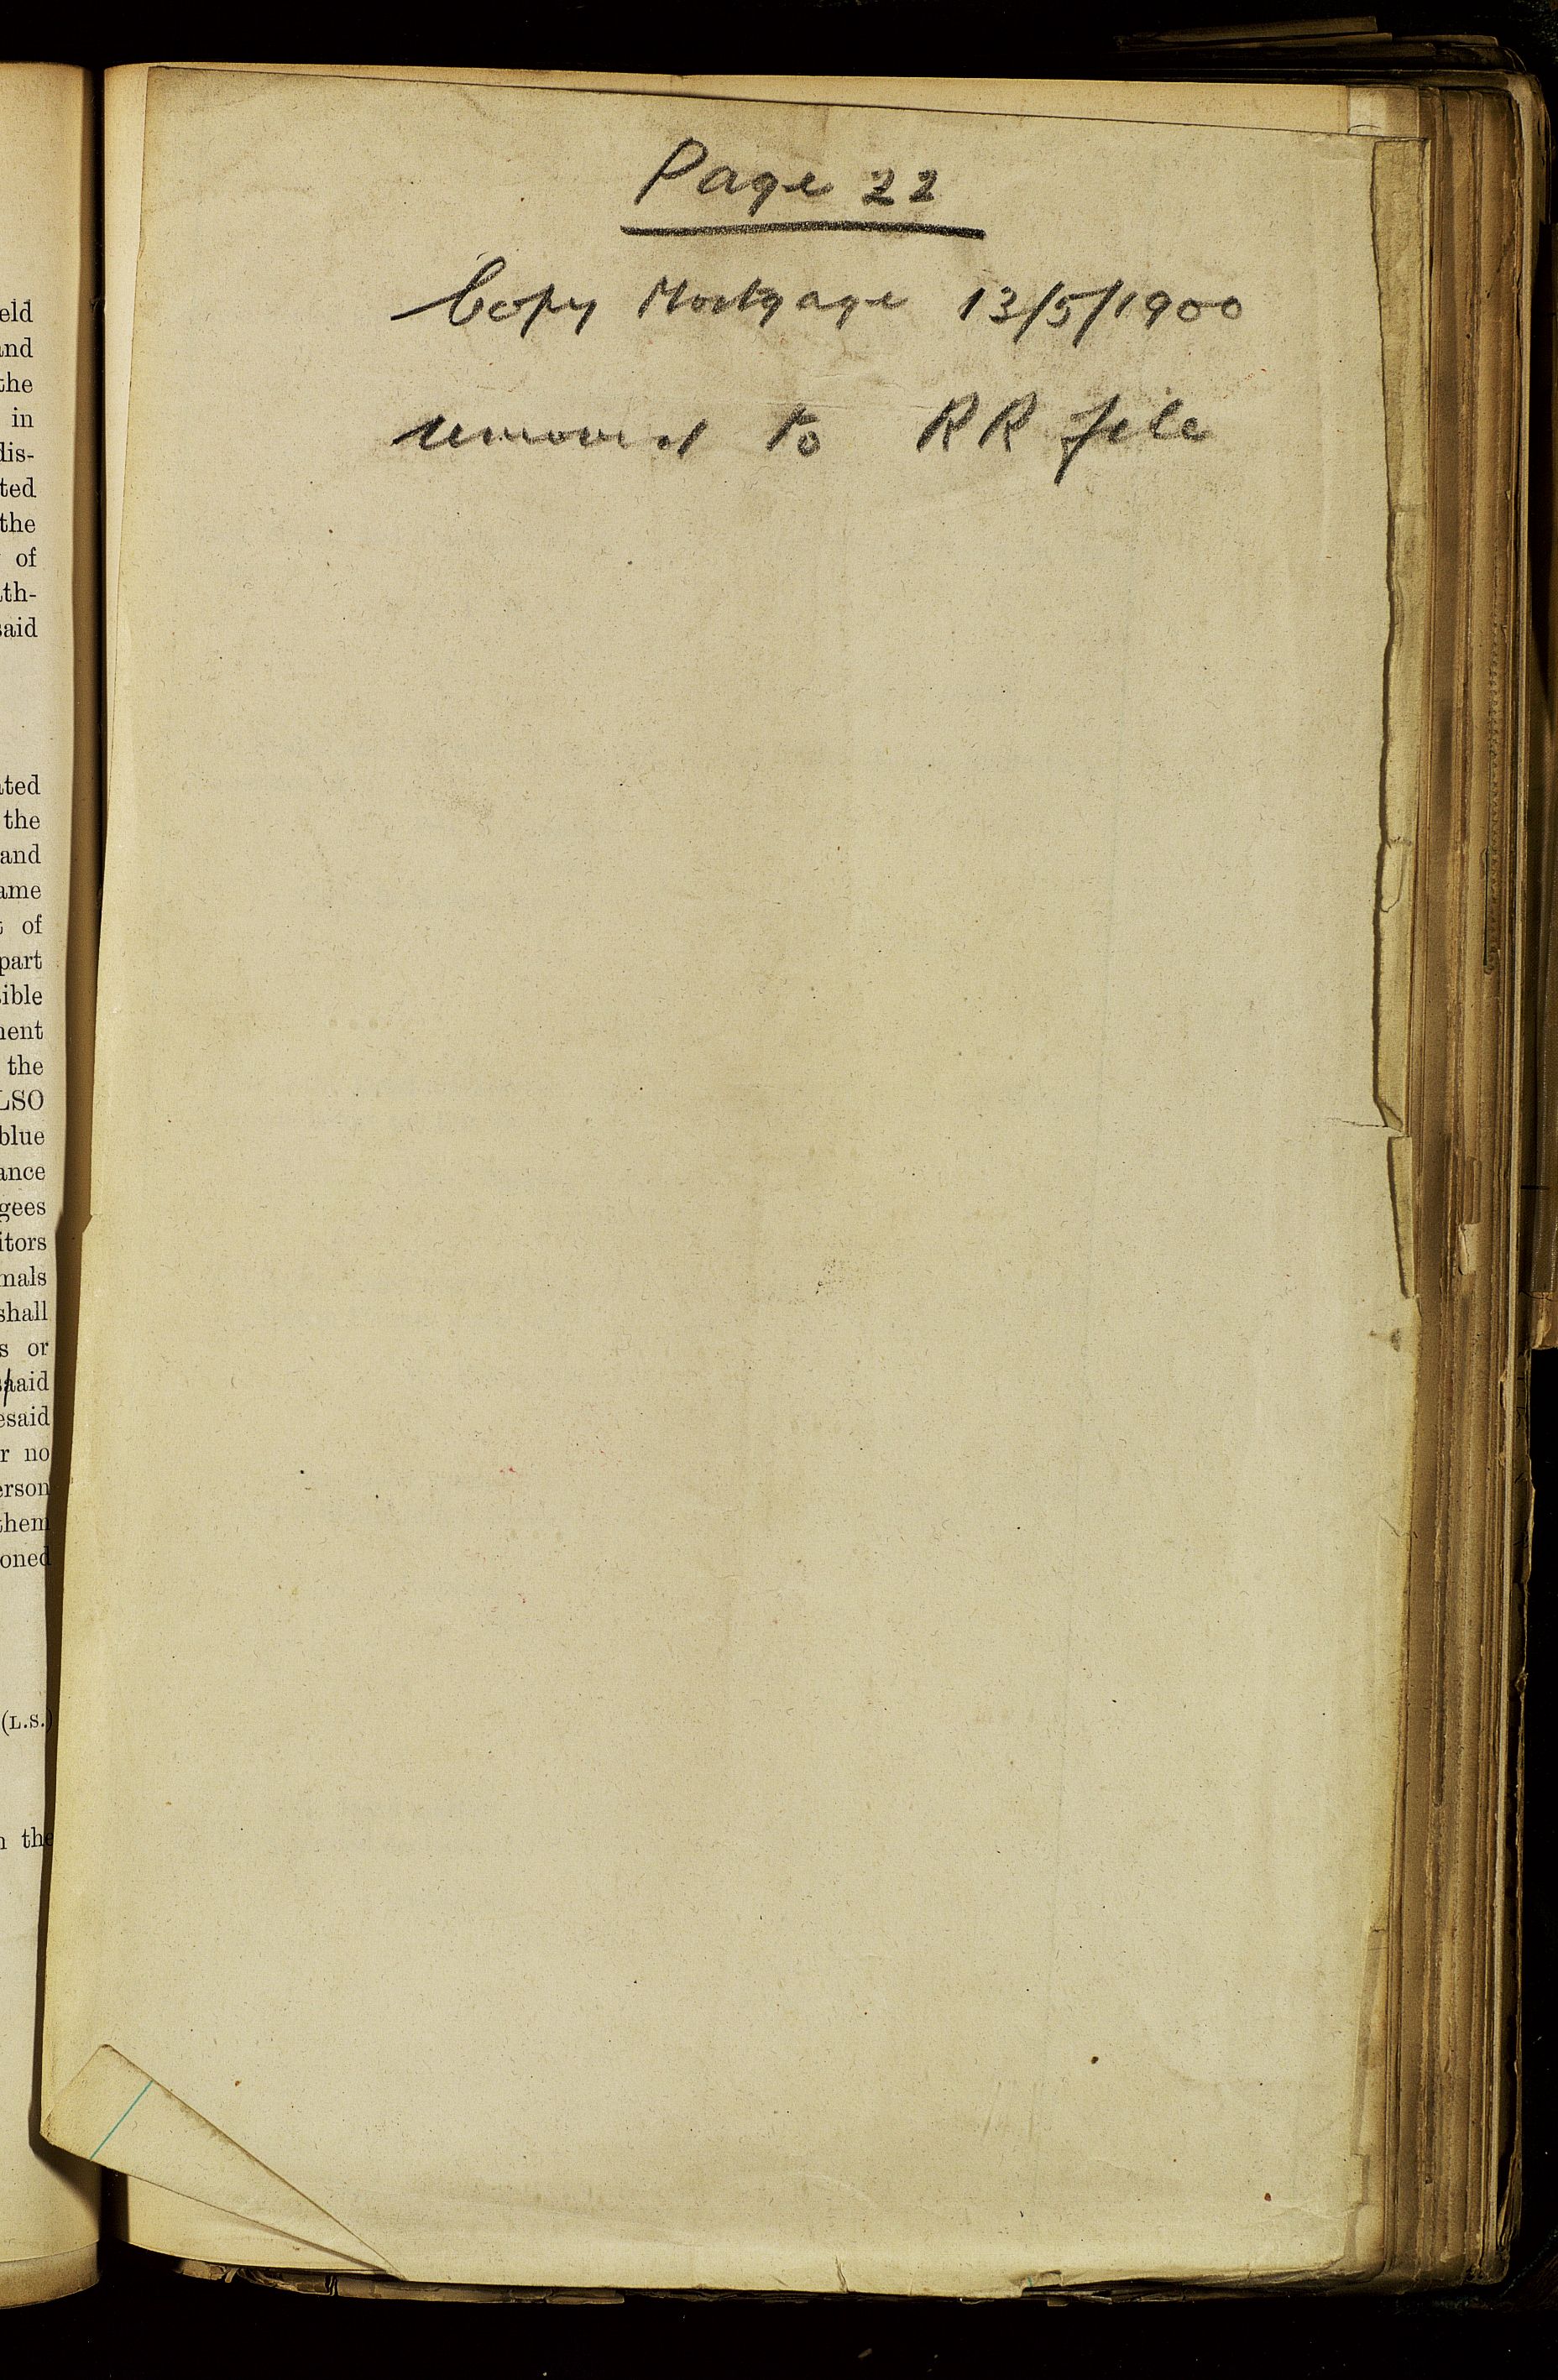 Page 22
Copy Mortgage 13/5/1900
removed to RR file
eld
and
the
in
dis-
ted
the
of
ith-
said
ated
the
and
ame
of
part
ible
ment
the
LSO
blue
ance
gees
itors
mals
shall
s or
said
esaid
r no
erson
them
oned
(L.S.)
n the